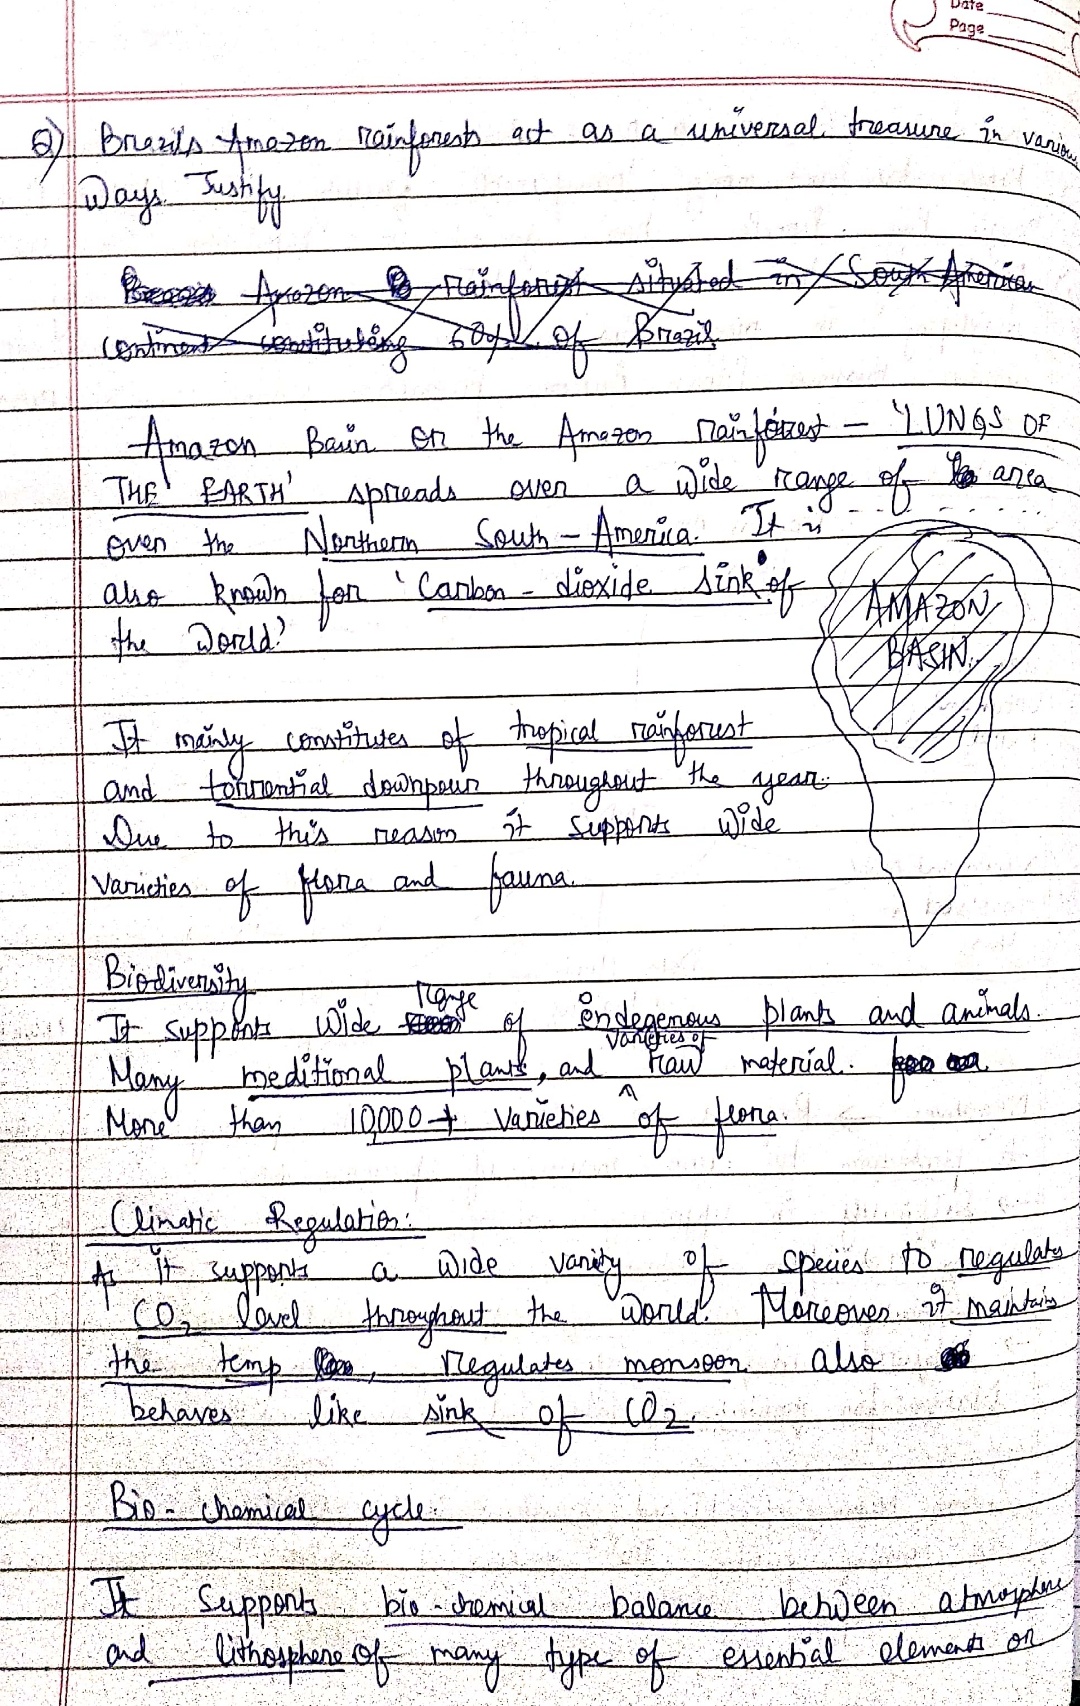 Date
Page
Q) Brazil's Amazon rainforests act as a universal treasure in various
Ways. Justify.
Amazon rainforest situated in South American
Continent constituting 60% of Brazil.
Amazon Basin or the Amazon rainforest – 'LUNGS OF
THE EARTH' spreads over a wide range of area
over the Northern South-America. It is
also known for 'Carbon-dioxide sink' of
the World.'
AMAZON
BASIN.
It mainly constitutes of tropical rainforrest
and torrential downpour throughout the year.
Due to this reason it supports wide
Varieties of flora and fauna.
Biodiversity
It supports wide range of endegenous plants and animals.
Many meditional plants, and varieties of raw material.
More than 10,000+ Varieties of flora.
Climatic Regulation:
As it supports a wide varity of species to regulates
CO2 level throughout the world. Moreover it maintains
the temp, regulates monsoon also
behaves like sink of CO2.
Bio-chemical cycle.
It Supports bio-chemical balance between atmosphere
and lithosphere of many type of essential elements or